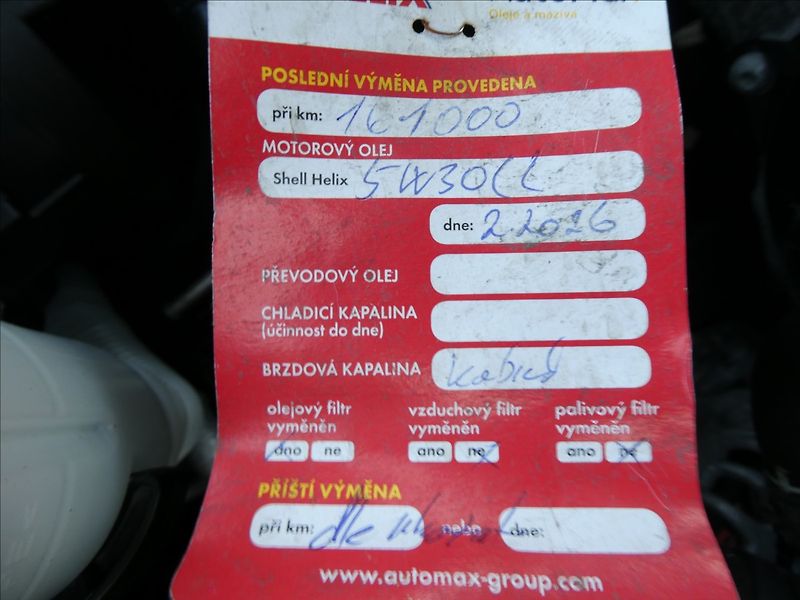 HELIX
Oleje a maziva
POSLEDNÍ VÝMĚNA PROVEDENA
při km: 161000
MOTOROVÝ OLEJ
Shell Helix 5W30LL
dne: 2.2026
PŘEVODOVÝ OLEJ
CHLADICÍ KAPALINA
(účinnost do dne)
BRZDOVÁ KAPALINA
olejový filtr vzduchový filtr palivový filtr
vyměněn vyměněn vyměněn
ano ne ano ne ano ne
PŘÍŠTÍ VÝMĚNA
při km: dle nebo dne:
www.automax-group.com